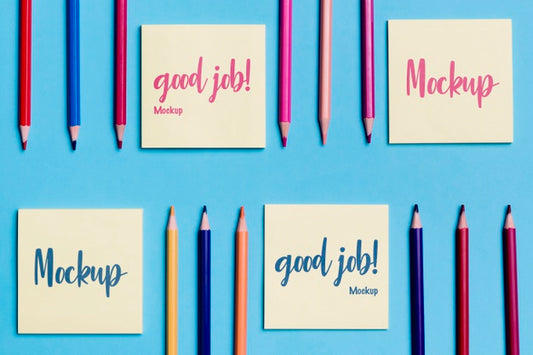 good job!
Mockup
Mockup
Mockup
good job!
Mockup